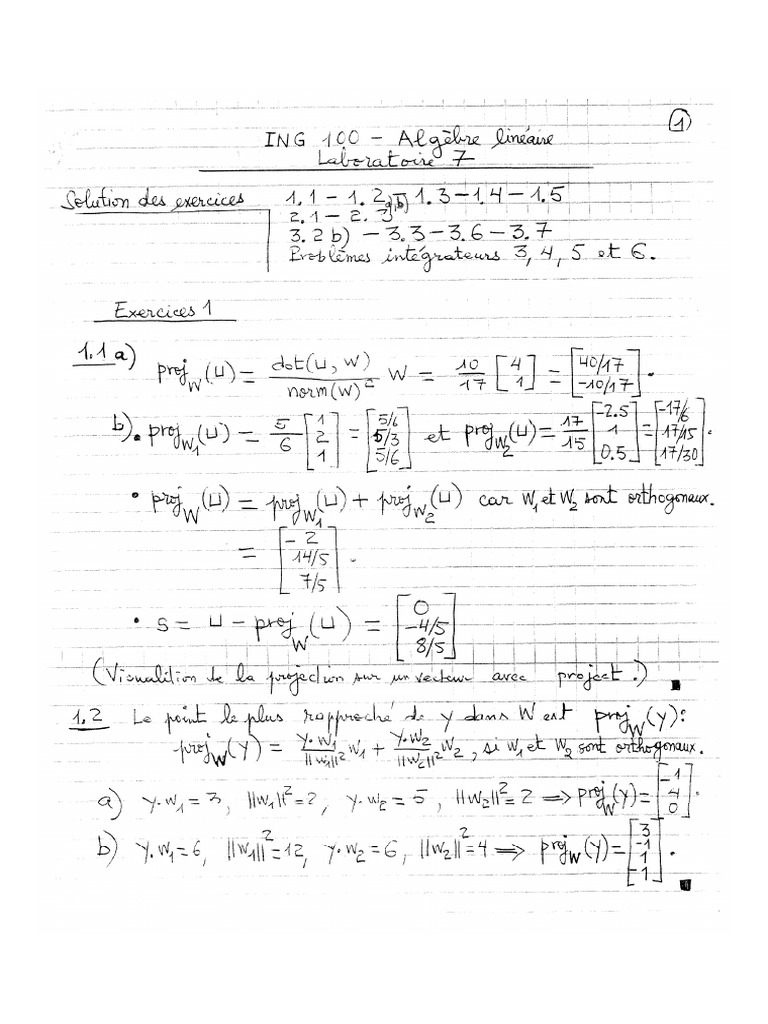 1
ING 100 - Algèbre linéaire
Laboratoire 7
Solution des exercices 1.1 - 1.2 a,b) 1.3 - 1.4 - 1.5
2.1 - 2.3
3.2 b) - 3.3 - 3.6 - 3.7
Problèmes intégrateurs 3, 4, 5 et 6.
Exercices 1
1.1 a) proj_W(u) = dot(u, w)/norm(w)² w = 10/17 [4 1] = [40/17 -10/17].
b) • proj_W1(u) = 5/6 [1 2 1] = [5/6 5/3 5/6] et proj_W2(u) = 17/15 [-2.5 1 0.5] = [-17/6 17/15 17/30].
• proj_W(u) = proj_W1(u) + proj_W2(u) car W1 et W2 sont orthogonaux.
= [-2 14/5 7/5].
• s = u - proj_W(u) = [0 -4/5 8/5]
(Visualition de la projection sur un vecteur avec project.) ■
1.2 Le point le plus rapproché de y dans W est proj_W(y):
proj_W(y) = y•w1/||w1||² w1 + y•w2/||w2||² w2, si w1 et w2 sont orthogonaux.
a) y•w1 = 3, ||w1||² = 2, y•w2 = 5, ||w2||² = 2 ⟹ proj_W(y) = [-1 4 0].
b) y•w1 = 6, ||w1||² = 12, y•w2 = 6, ||w2||² = 4 ⟹ proj_W(y) = [3 -1 1 -1].
■